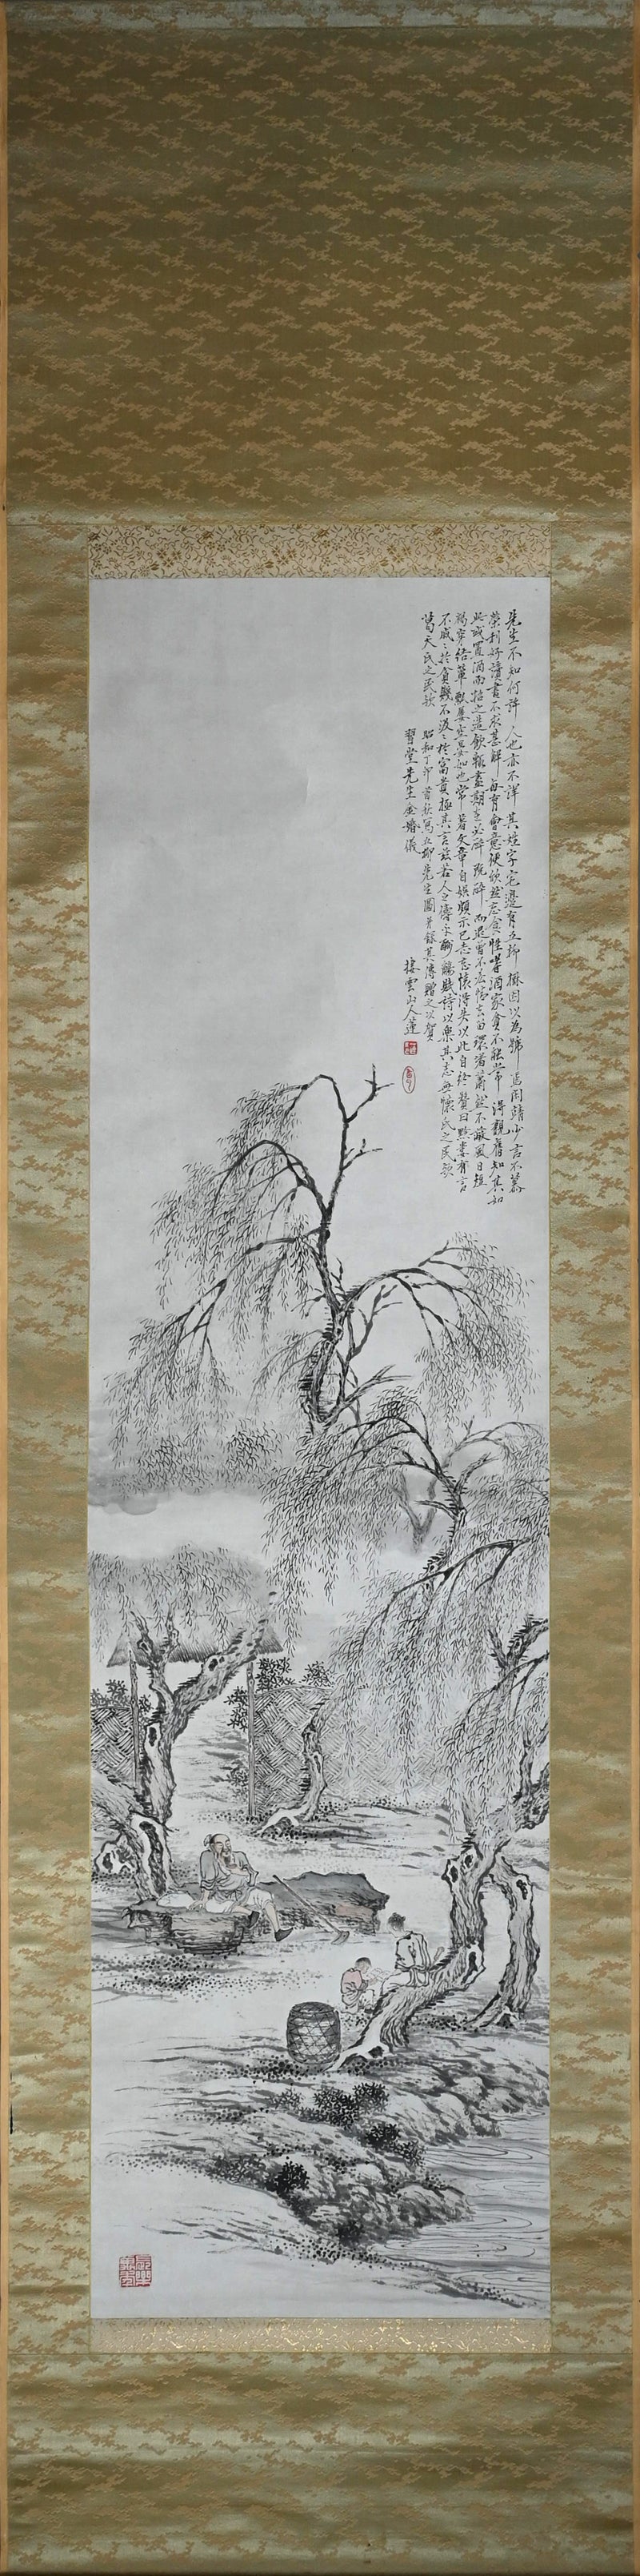 先生不知何許人也亦不詳其姓字宅邊有五柳樹因以為號焉閑靖少言不慕
榮利好讀書不求甚解每有會意便欣然忘食性嗜酒家貧不能常得親舊知其如
此或置酒而招之造飲輒盡期在必醉既醉而退曾不吝情去留環堵蕭然不蔽風日短
褐穿結簞瓢屢空晏如也常著文章自娛頗示己志忘懷得失以此自終贊曰黔婁有言
不戚々於貧賤不汲々於富貴極其言茲若人之儔乎酣觴賦詩以樂其志無懷氏之民歟
葛天氏之民歟
昭和丁卯首秋寫五柳先生圖并錄其傳贈之以賀
堂先生金婚儀
雲山人蓮